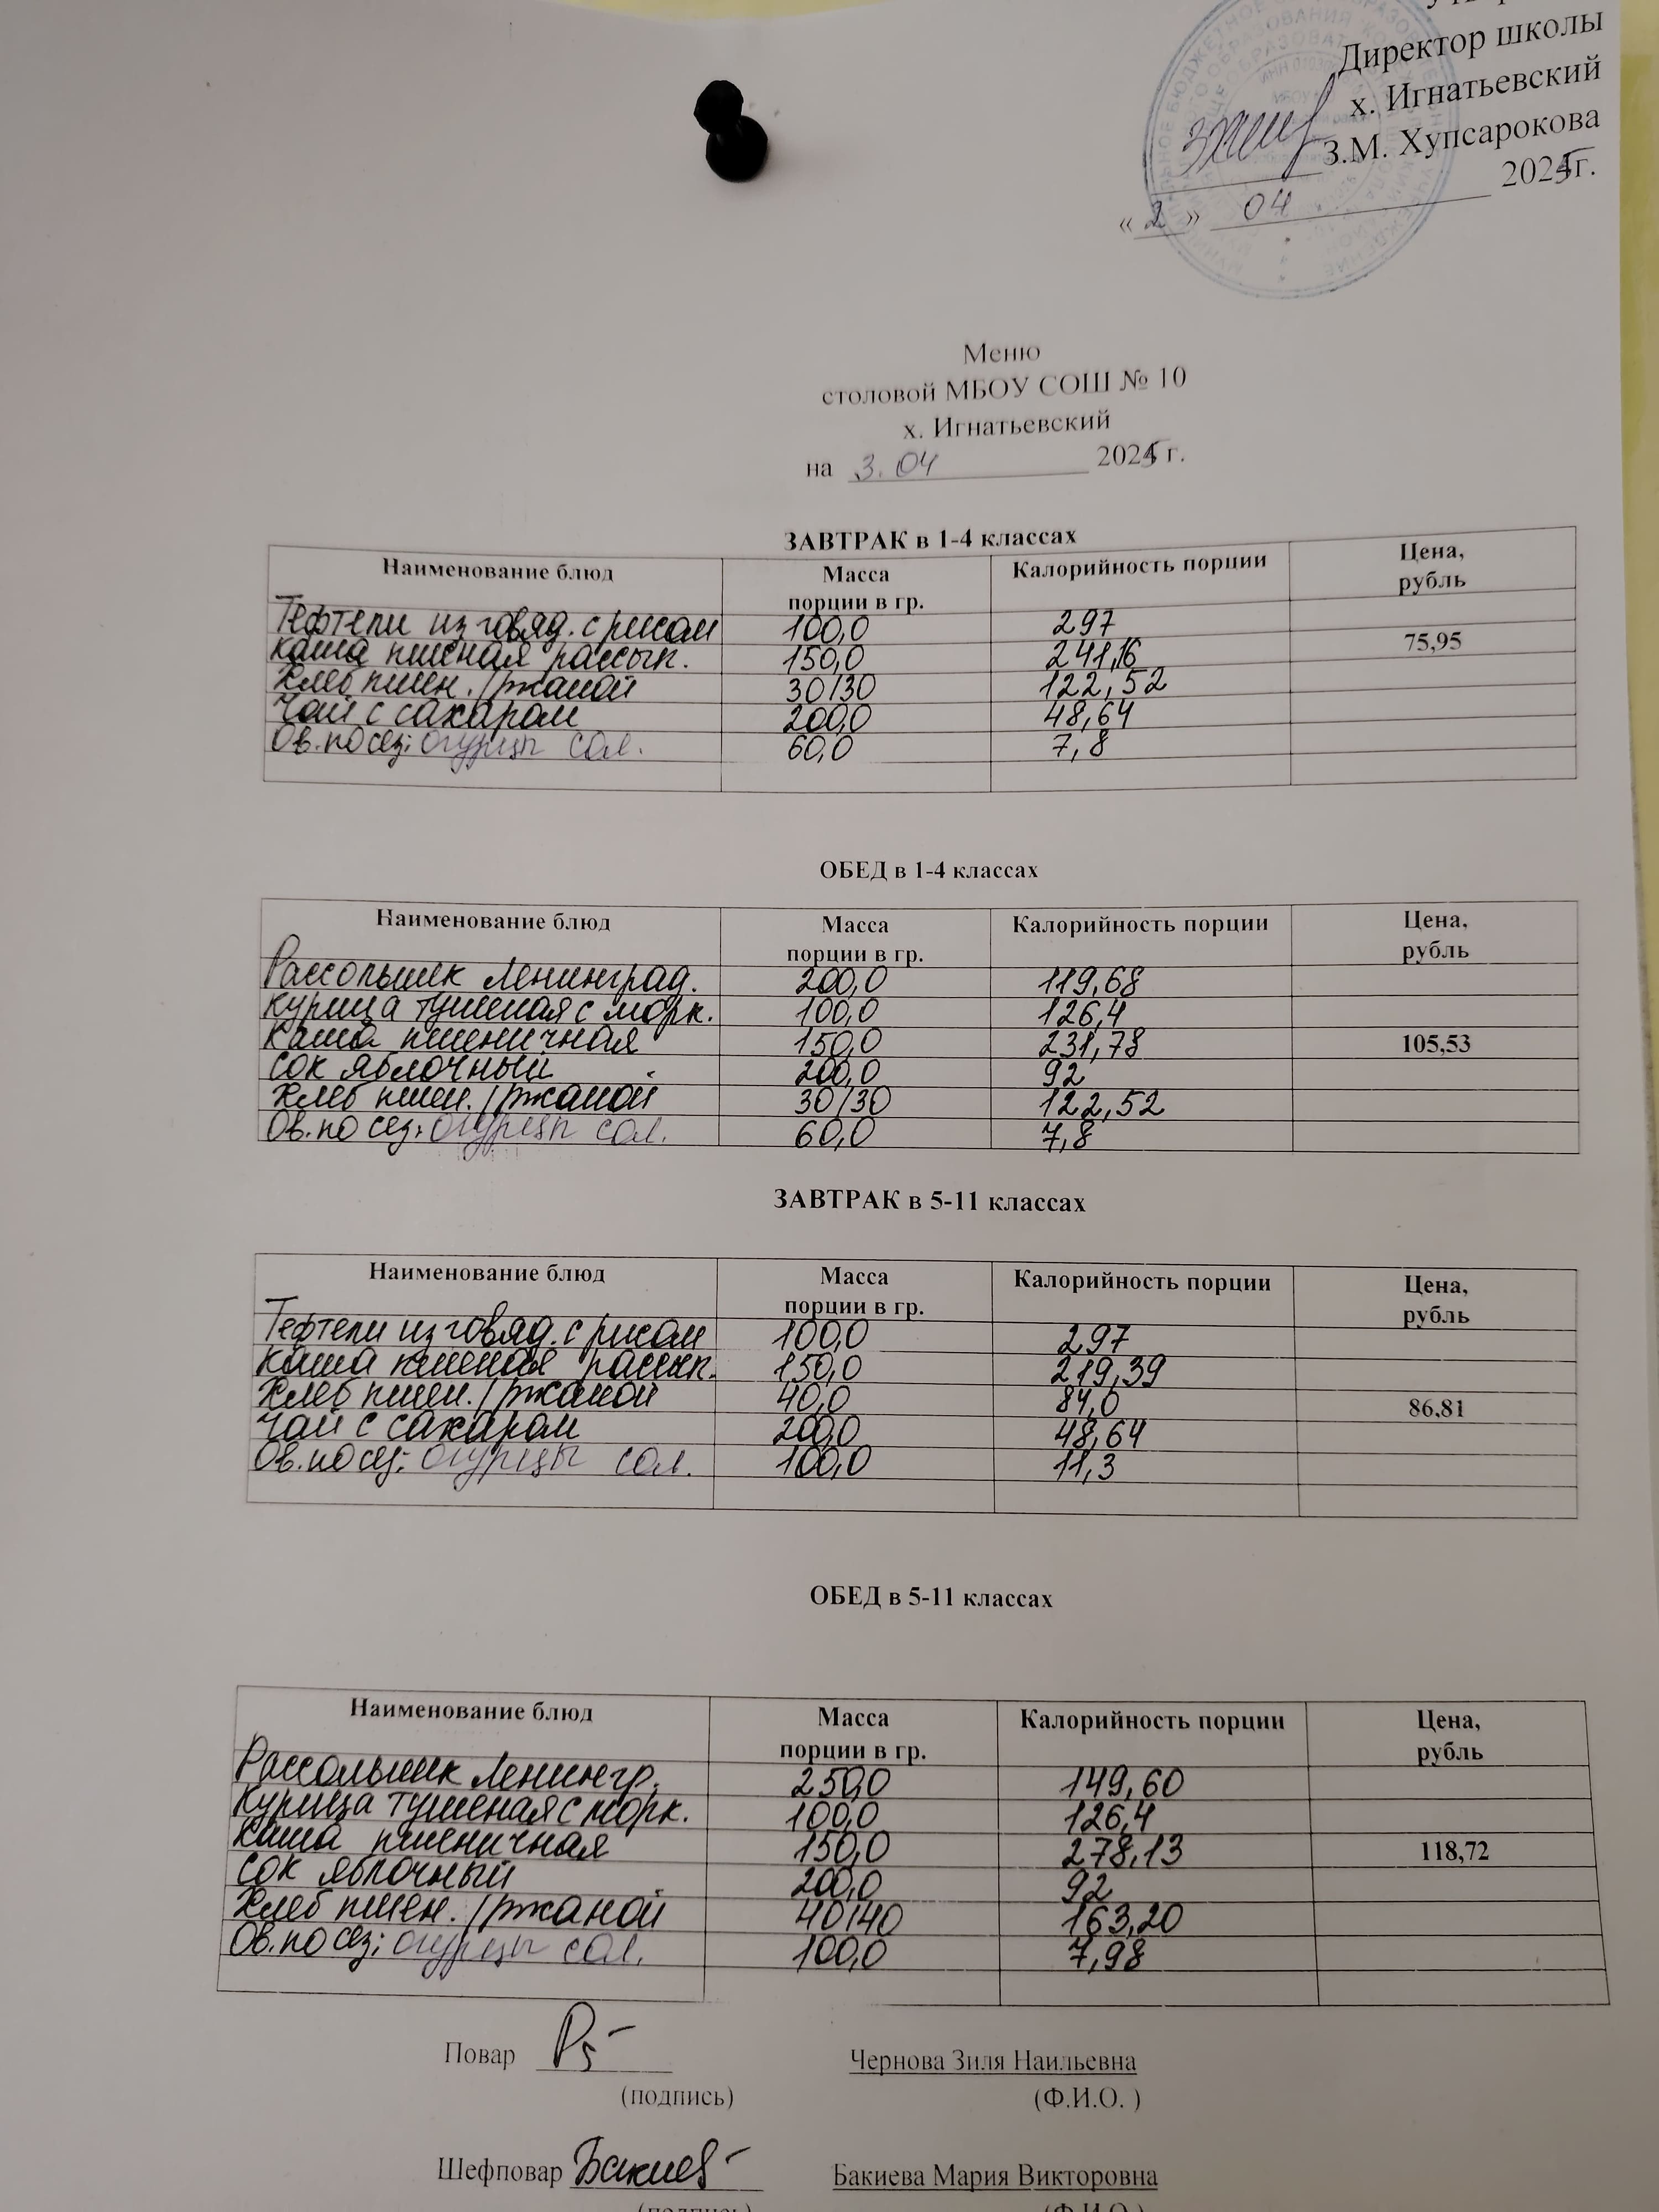 Директор школы
х. Игнатьевский
З.М. Хупсарокова
« 2 » 04 2025г.
Меню
столовой МБОУ СОШ № 10
х. Игнатьевский
на 3. 04 2025 г.
ЗАВТРАК в 1-4 классах
Наименование блюд Масса порции в гр. Калорийность порции Цена, рубль
Тефтели из говяд. с рисом 100,0 297
Каша пшеная рассып. 150,0 241,16 75,95
Хлеб пшен. / ржаной 30/30 122,52
Чай с сахаром 200,0 48,64
Ов. по сез: огурцы сол. 60,0 7,8
ОБЕД в 1-4 классах
Наименование блюд Масса порции в гр. Калорийность порции Цена, рубль
Рассольник Ленинград. 200,0 119,68
Курица тушеная с морк. 100,0 126,4
Каша пшеничная 150,0 231,78 105,53
Сок яблочный 200,0 92
Хлеб пшен. / ржаной 30/30 122,52
Ов. по сез: огурцы сол. 60,0 7,8
ЗАВТРАК в 5-11 классах
Наименование блюд Масса порции в гр. Калорийность порции Цена, рубль
Тефтели из говяд. с рисом 100,0 297
Каша пшеная рассып. 150,0 219,39
Хлеб пшен. / ржаной 40,0 84,0 86,81
Чай с сахаром 200,0 48,64
Ов. по сез: огурцы сол. 100,0 11,3
ОБЕД в 5-11 классах
Наименование блюд Масса порции в гр. Калорийность порции Цена, рубль
Рассольник Ленингр. 250,0 149,60
Курица тушеная с морк. 100,0 126,4
Каша пшеничная 150,0 278,13 118,72
Сок яблочный 200,0 92
Хлеб пшен. / ржаной 40/40 163,20
Ов. по сез: огурцы сол. 100,0 7,98
Повар Чернова Зиля Наильевна
(подпись) (Ф.И.О. )
Шефповар Бакиев Бакиева Мария Викторовна
(подпись) (Ф.И.О.)